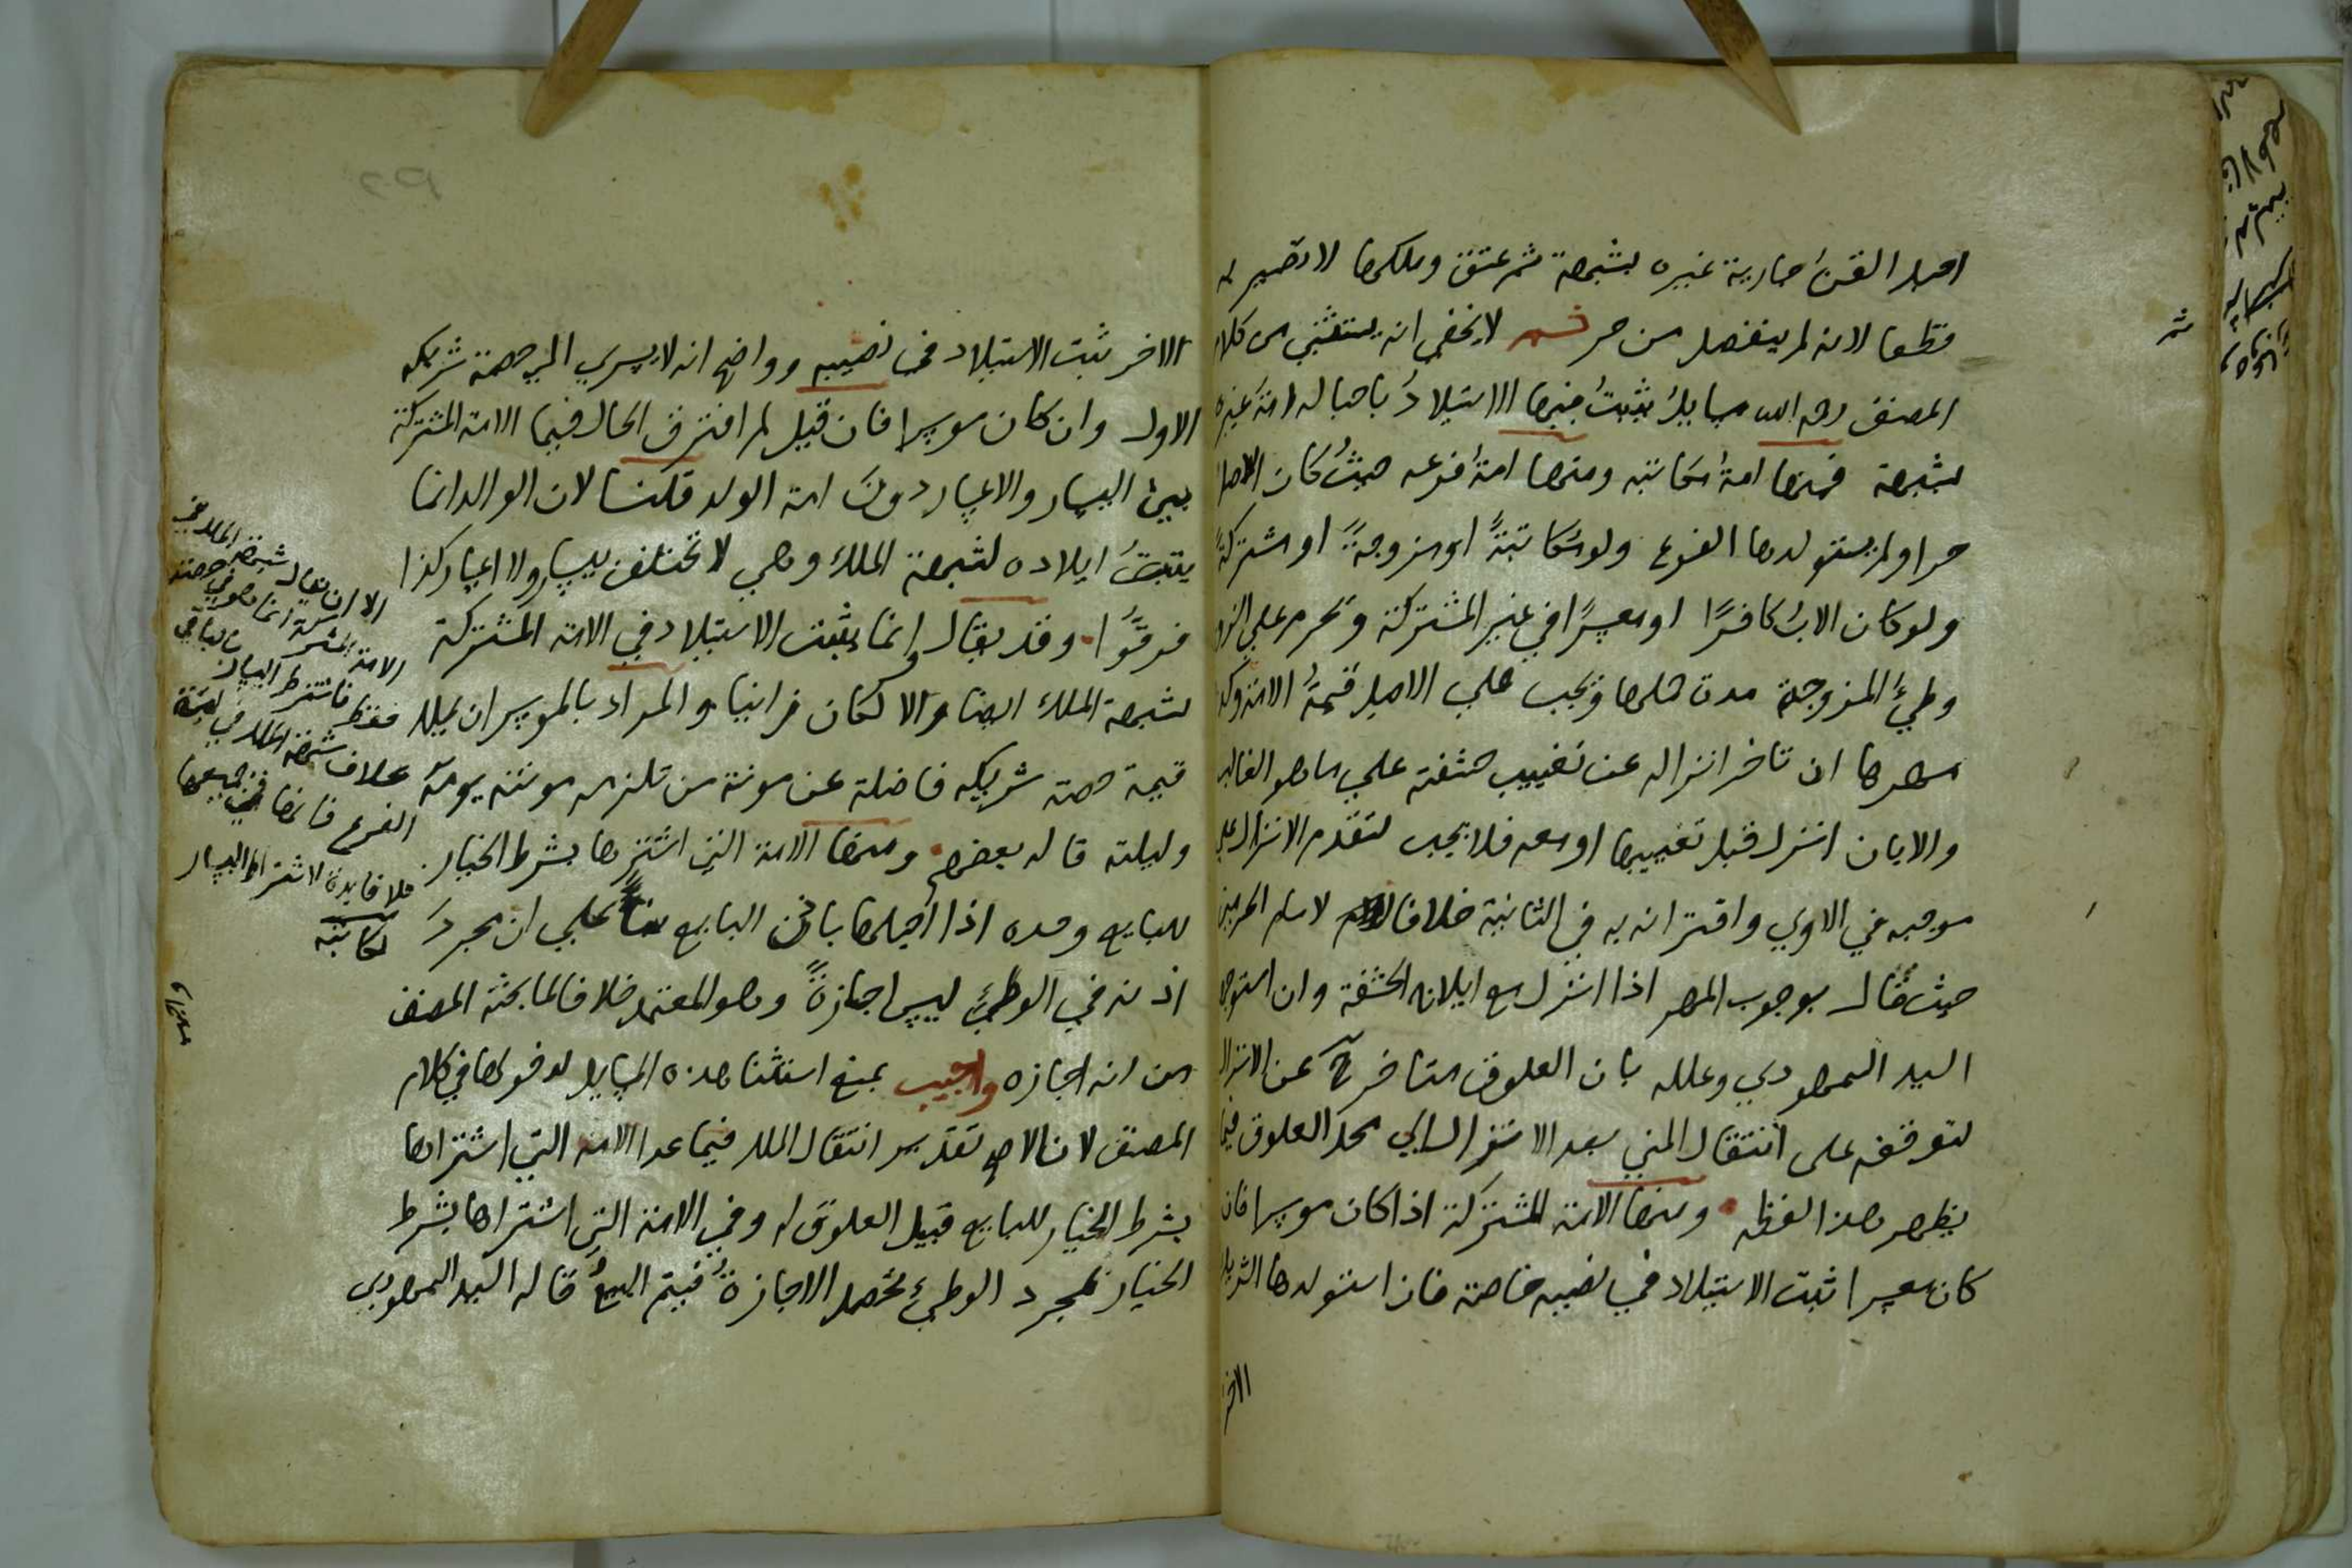 احبل القنُ جارية غيره بشبهة ثم عتق وملكها لا تصير له
قطعا لانه لم ينفصل من حر ثم لا يخفى انه يستثنى من كلام
المصنف رحمه الله مسايل يثبتُ فيها الاستيلادُ باحباله امةَ غيره
بشبهة فمنها امةُ مكاتبه ومنها امةُ فرعه حيثُ كان الاصل
حرا ولم يستولدها الفرع ولو مُكاتبةً او مزوجةً او مشتركةً
ولو كان الابُ كافرًا او معسِرًا في غير المشتركة وتحرم علي الزوج
وطيُ المزوجة مدة حملها وتجب علي الاصيل قيمةُ الامة وكذا
مهرها ان تاخر انزاله عن تغييب حشفته علي ما هو الغالب
والا بان انزل قبل تغييبها او معه فلا يجب لتقدم الانزال علي
موجبه في الاولي واقترانه به في الثانية خلافا لامام الحرمين
حيث قال بوجوب المهر اذا انزل مع ايلاج الحشفة وان استوجه
السيد السمهودي وعلله بان العلوق متاخر ح عن الانزال
لتوقفه على انتقال المني بعد الانزال الي محل العلوق فيما
يظهر هذا لفظه ومنها الامة المشتركة اذا كان موسرا فان
كان معسرا ثبت الاستيلاد في نصيبه خاصة فان استولدها الشريك
الاخر
الاخر ثبت الاستيلاد في نصيبه وواضح انه لا يسري الي حصة شريكه
الاول وان كان موسرا فان قيل لم افترق الحال فيما الامة المشتركة
بين اليسار والاعسار دونَ امة الولد قلنا لان الوالد انما
يثبتُ ايلاده لشبهة الملك وهي لا تختلف بيسار ولا اعسار كذا
فرقُوا وقد يقال وانما يثبت الاستيلاد في الامة المشتركة
لشبهة الملك ايضا والا لكان زانيا والمراد بالموسر ان يملك
قيمة حصة شريكه فاضلة عن مونة من تلزمه مونته يومه
وليلته قاله بعضهم ومنها الامة التي اشتريها بشرط الخيار
للبايع وحده اذا احبلها باذن البايع بناً علي ان مجردَ
اذنه في الوطيِ ليس اجازةً وهو المعتمد خلافا لما بحثه المصنف
من انه اجازه واجيب بمنع استثنا هذه المسايل لدخولها في كلام
المصنف لان الاصح تقدير انتقال الملك فيما عدا الامة التي اشتراها
بشرط الخيار للبايع قبيل العلوق له وفي الامة التي اشتراها بشرط
الخيار بمجرد الوطيِ تحصل الاجازةُ فيتم البيعُ قاله السيد السمهودي
الا ان يقال شبهة الملك في
الامة المشتركة انما هو في حصته
فقط فاشترط اليسار بالباقي
بخلاف شبهة الملك في امة
الفرع فانها في جميعها
فلا فايدة لاشتراط اليسار
لكاتبه